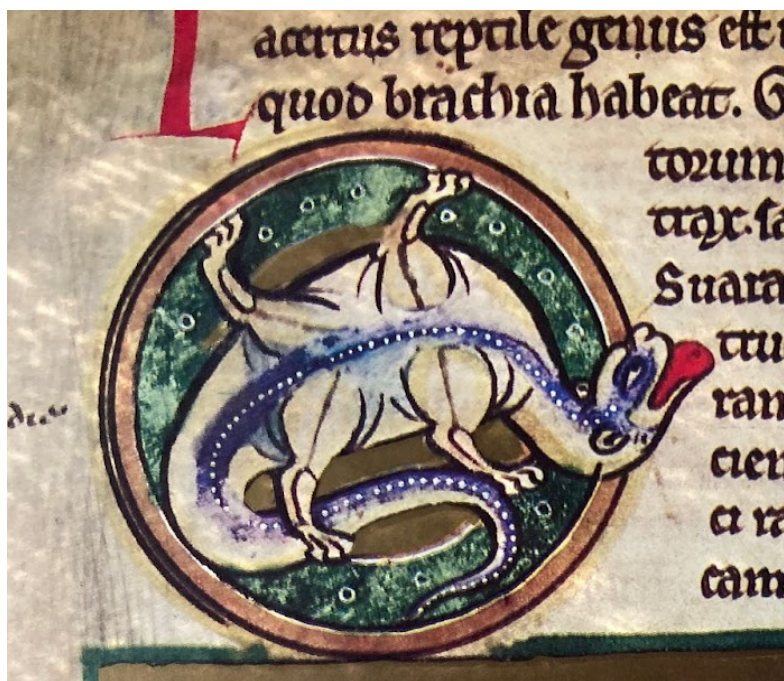 Lacertus reptile genus est
quod brachia habeat.
torum
Suara
tru
ran
cien
ci
cam